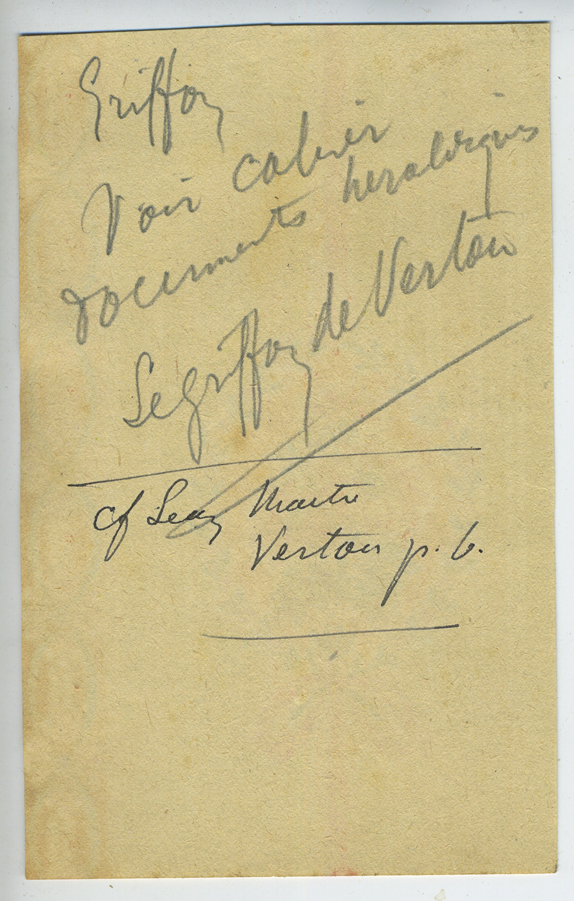 Griffon
Voir cahier
documents heraldiques
Le griffon de Verton
cf Leon Maitre
Vertou p. 6.